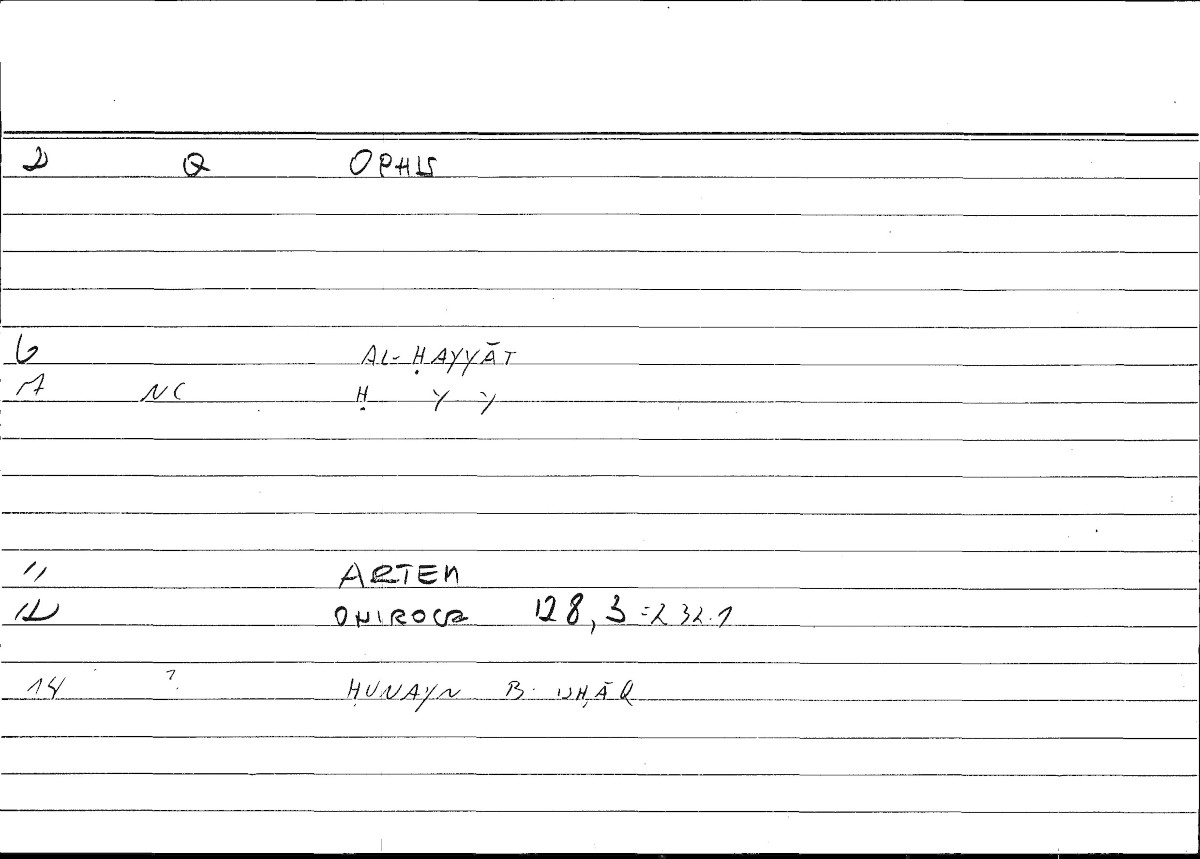 2 Q OPHIS
6 AL-ḤAYYĀT
7 NC Ḥ Y Y
11 ARTEM
12 ONIROCR 128,3=232.1
14 ? ḤUNAYN B. ISḤĀQ